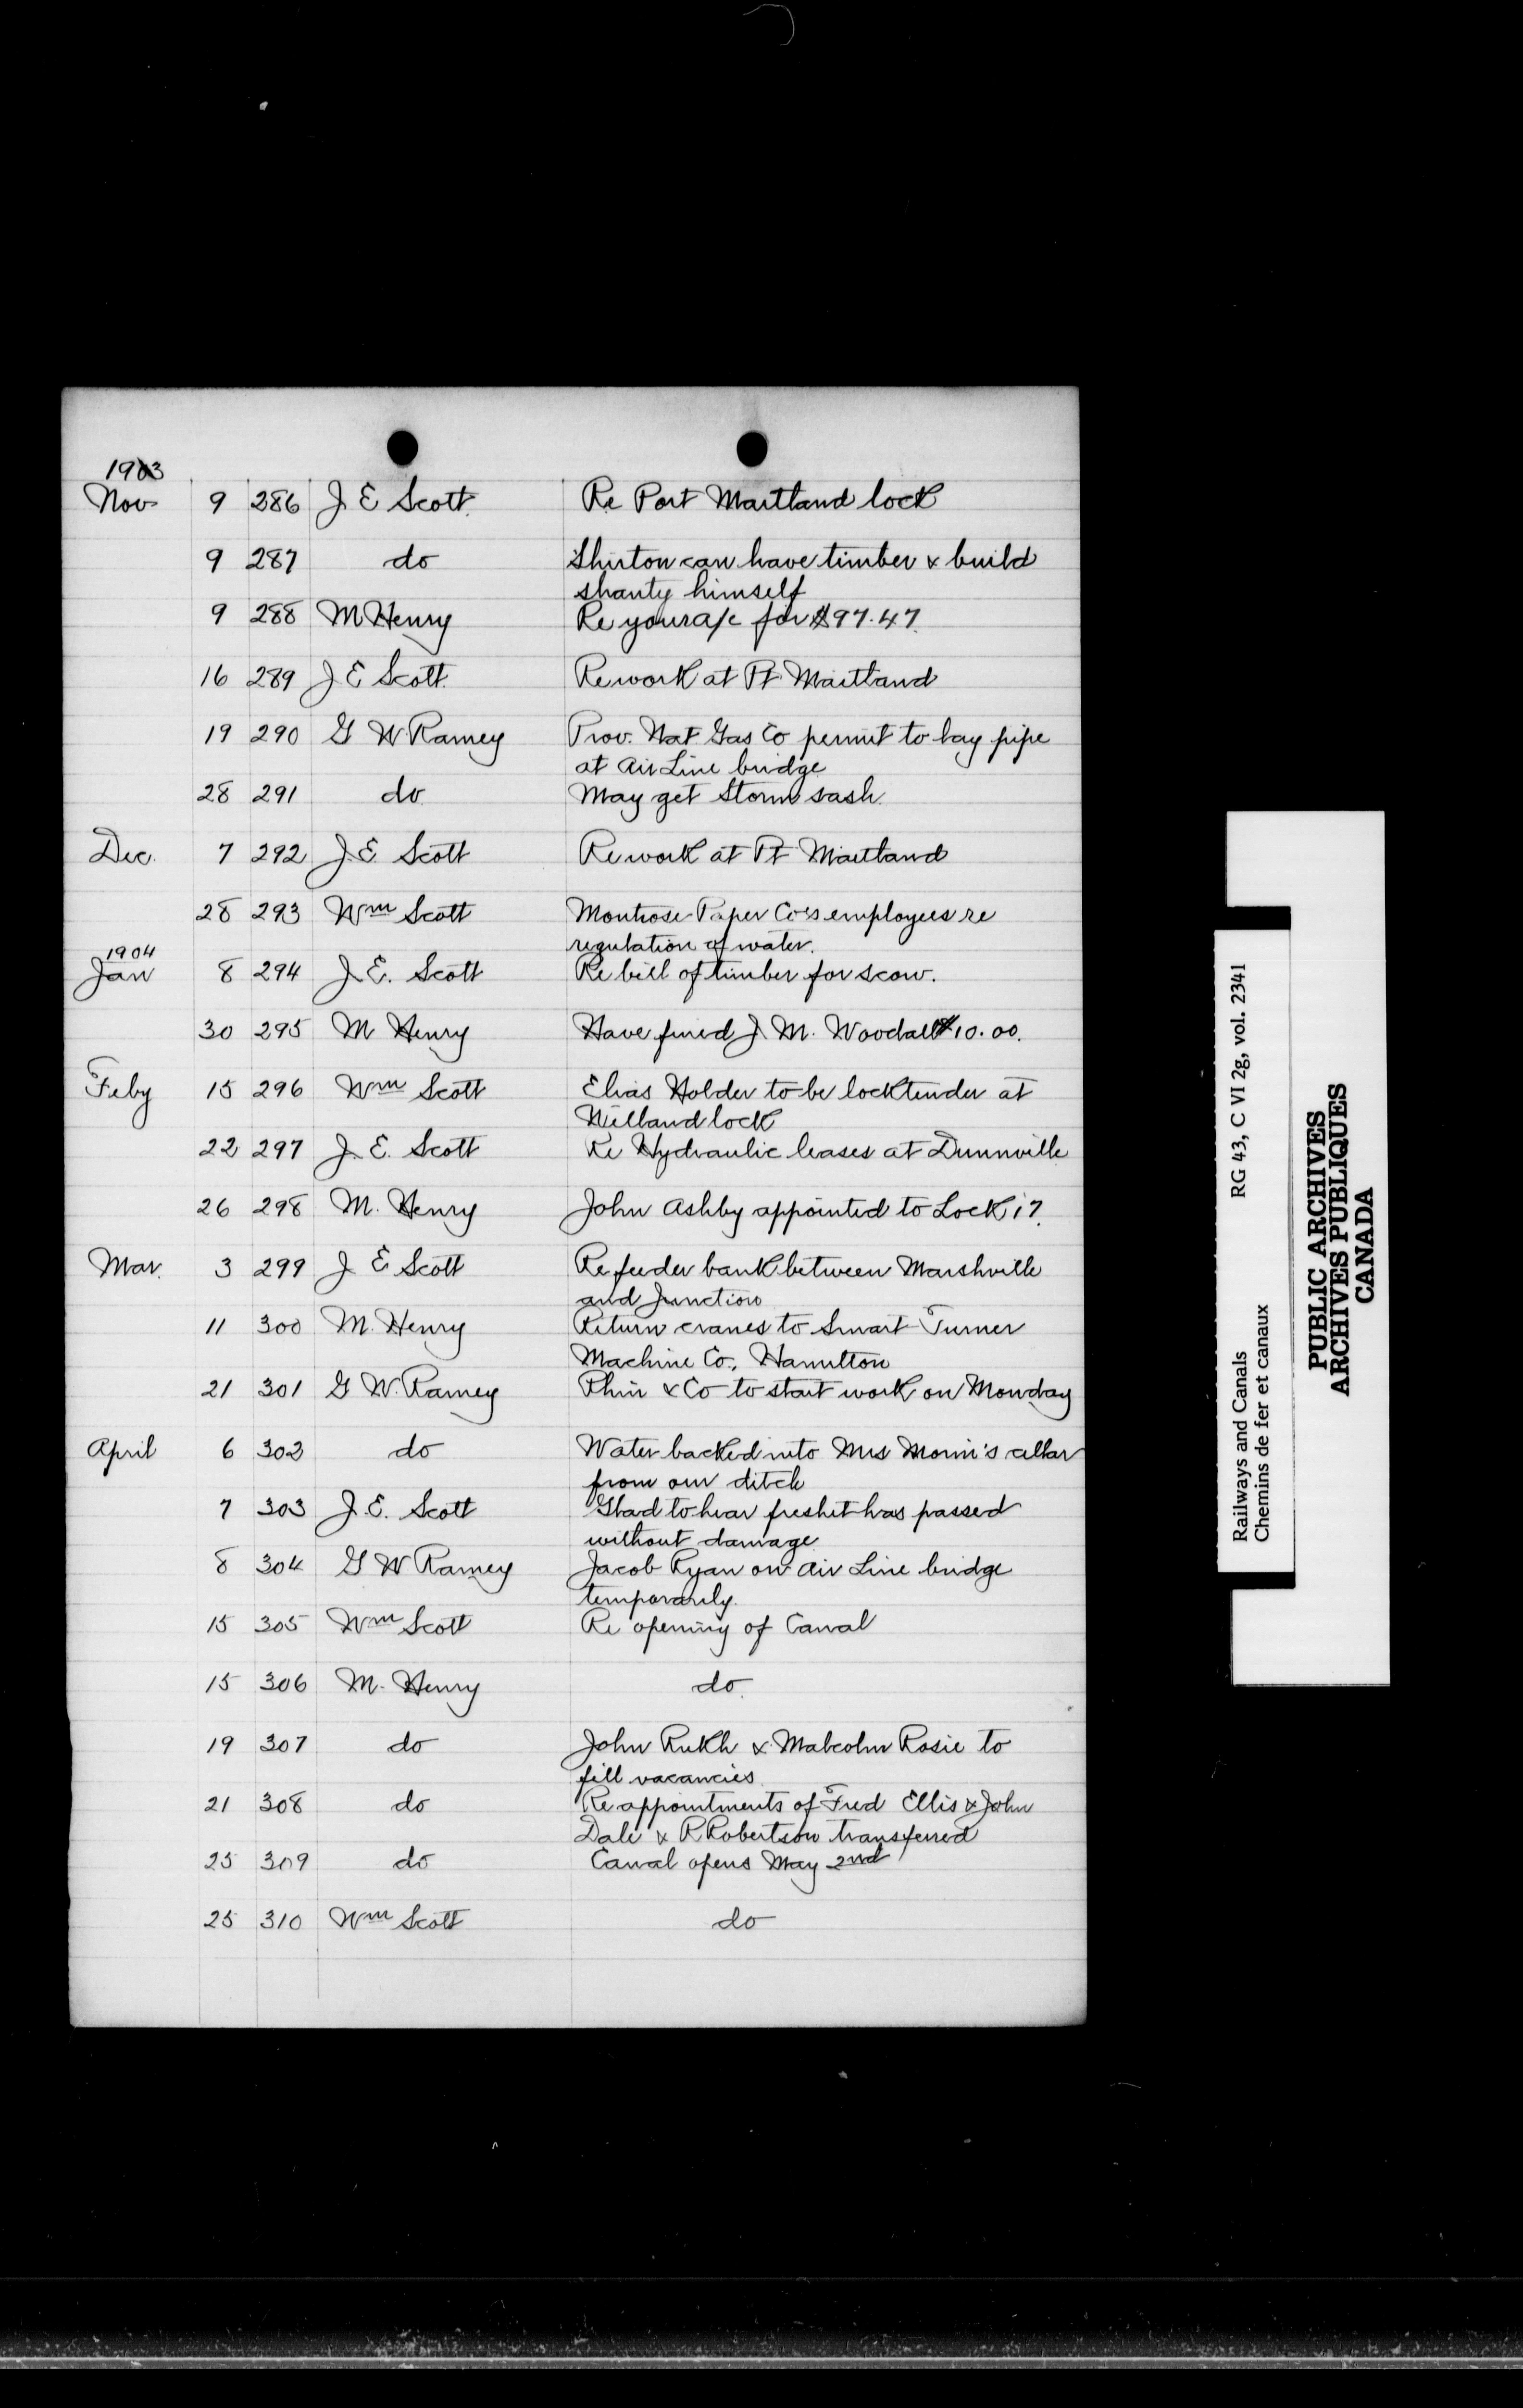 1903
Nov 9 286 J E Scott Re Port Maitland lock
9 287 do Shirton can have timber & build
shanty himself
9 288 M Henry Re your a/c for $97.47.
16 289 J E Scott. Re work at Pt Maitland
19 290 G W Ramey Prov. Nat Gas Co permit to lay pipe
at Air Line bridge
28 291 do May get storm sash.
Dec. 7 292 J. E Scott Re work at Pt Maitland
28 293 Wm Scott Montrose Paper Co's employees re
regulation of water.
1904
Jan 8 294 J. E. Scott Re bill of timber for scow.
30 295 M Henry Have fined J. M. Woodall $10.00.
Feby 15 296 Wm Scott Elias Holder to be locktender at
Welland lock
22 297 J. E. Scott Re Hydraulic leases at Dunnville
26 298 M. Henry John Ashby appointed to Lock 17.
Mar. 3 299 J E Scott Re feeder bank between Marshville
and Junction
11 300 M. Henry Return cranes to Smart Turner
Machine Co., Hamilton
21 301 G W. Ramey Phin & Co to start work on Monday
April 6 302 do Water backed into Mrs cellar
from our ditch
7 303 J. E. Scott Glad to hear freshet has passed
without damage
8 304 G W Ramey Jacob Ryan on Air Line bridge
temporarily.
15 305 Wm Scott Re opening of Canal
15 306 M. Henry do.
19 307 do John & Malcolm Rosie to
fill vacancies
21 308 do Re appointments of Fred Ellis & John
Dale & R Robertson transferred
25 309 do Canal opens May 2nd
25 310 Wm Scott do
Railways and Canals RG 43, C VI 2g, vol. 2341
Chemins de fer et canaux
PUBLIC ARCHIVES
ARCHIVES PUBLIQUES
CANADA